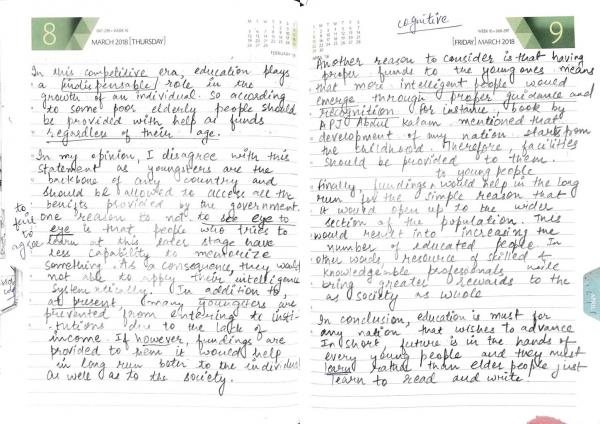 8
067-298 • WEEK 10
MARCH 2018 [THURSDAY]
M T W T F S S
FEBRUARY
In this competitive era, education plays
a indispensable role in the
growth of an individual. So according
to some poor elderly people should
be provided with help as funds
regardless of their age.
In my opinion, I disagree with this
statement as youngsters are the
backbone of any country and
should be allowed to access all the
benifits provided by the government.
one reason to not to see eye to
eye is that people who tries to
learn at this later stage have
less capability to memorize
something. As a consequence, they would
not able to apply their intelligence
systematically. In addition to,
at present, many youngsters are
prevented from entering to insti-
tutions due to the lack of
income. If however, fundings are
provided to them it would help
in long run boter to the individual
as well as to the society.
to
agree
cognitive
WEEK 10 • 068-297
[FRIDAY] MARCH 2018
9
Another reason to consider is that having
proper funds to the young ones means
that more intelligent people would
emerge through proper guidance and
recognition for instance, book by
APJ Abdul Kalam mentioned that
development of my nation starts from
the childhood. Therefore, facilities
should be provided to them.
to young people
Finally, fundings would help in the long
run for the simple reason that
it would open up to the wider
section of the population. This
would result into increasing the
number of educated people. In
other words, resource of skilled &
knowledgeable professionals will
bring greater rewards to the
as society as whole
In conclusion, education is must for
any nation that wishes to advance
In short, future is in the hands of
every young people and they must
learn rather than elder people just
learn to read and write.